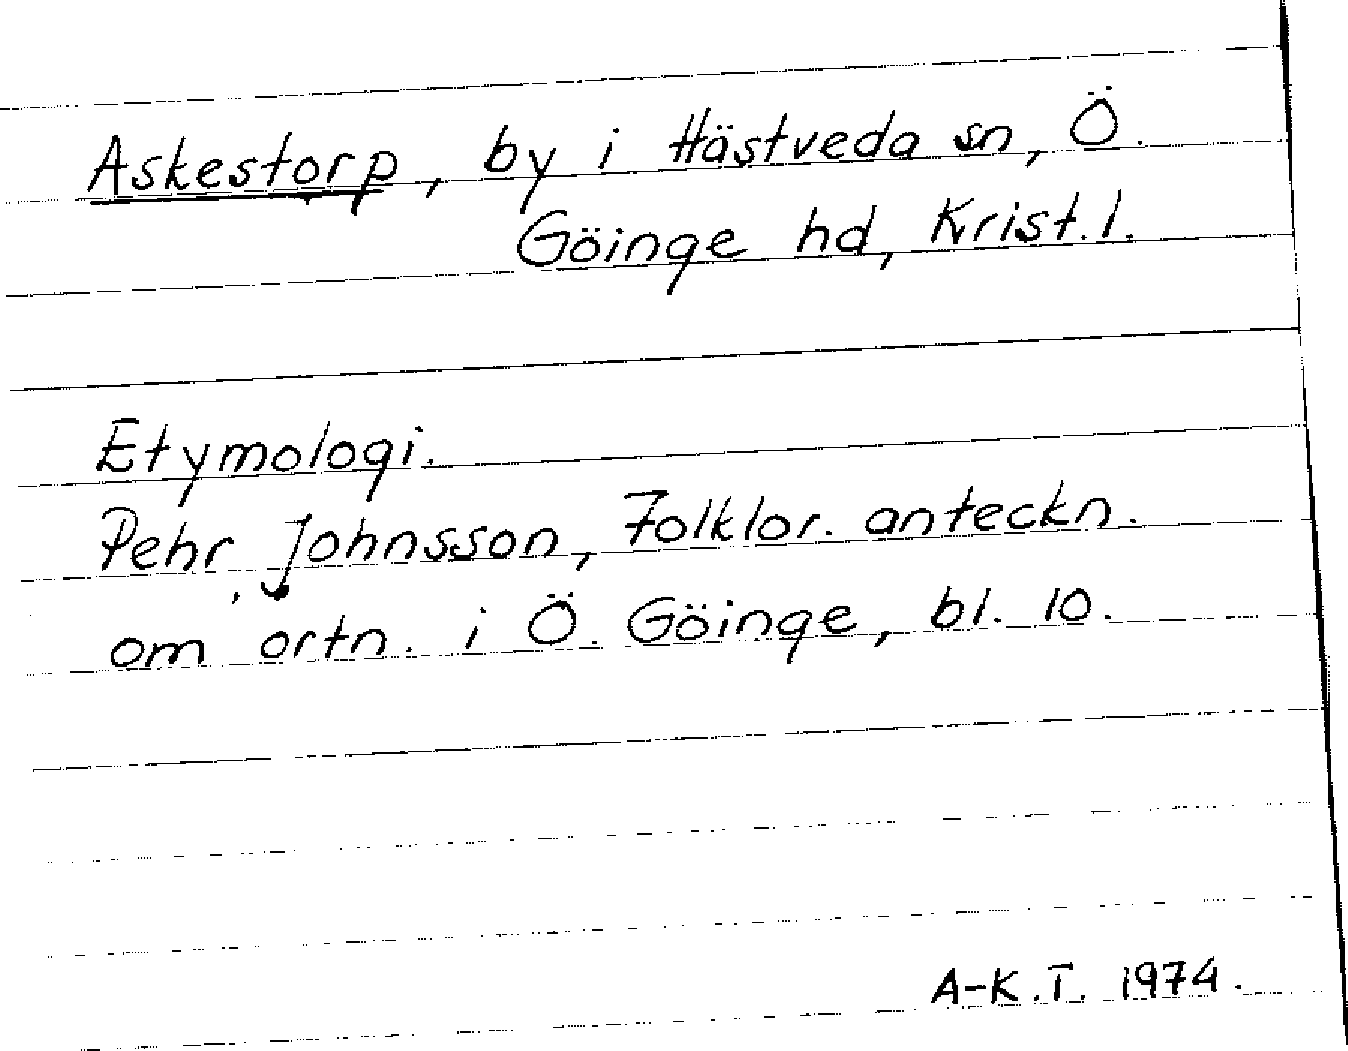 Askestorp, by i Hästveda sn, Ö.
Göinge hd, Krist. l.
Etymologi.
Pehr Johnsson, Folklor. anteckn.
om ortn. i Ö. Göinge, bl. 10.
A-K.T. 1974.